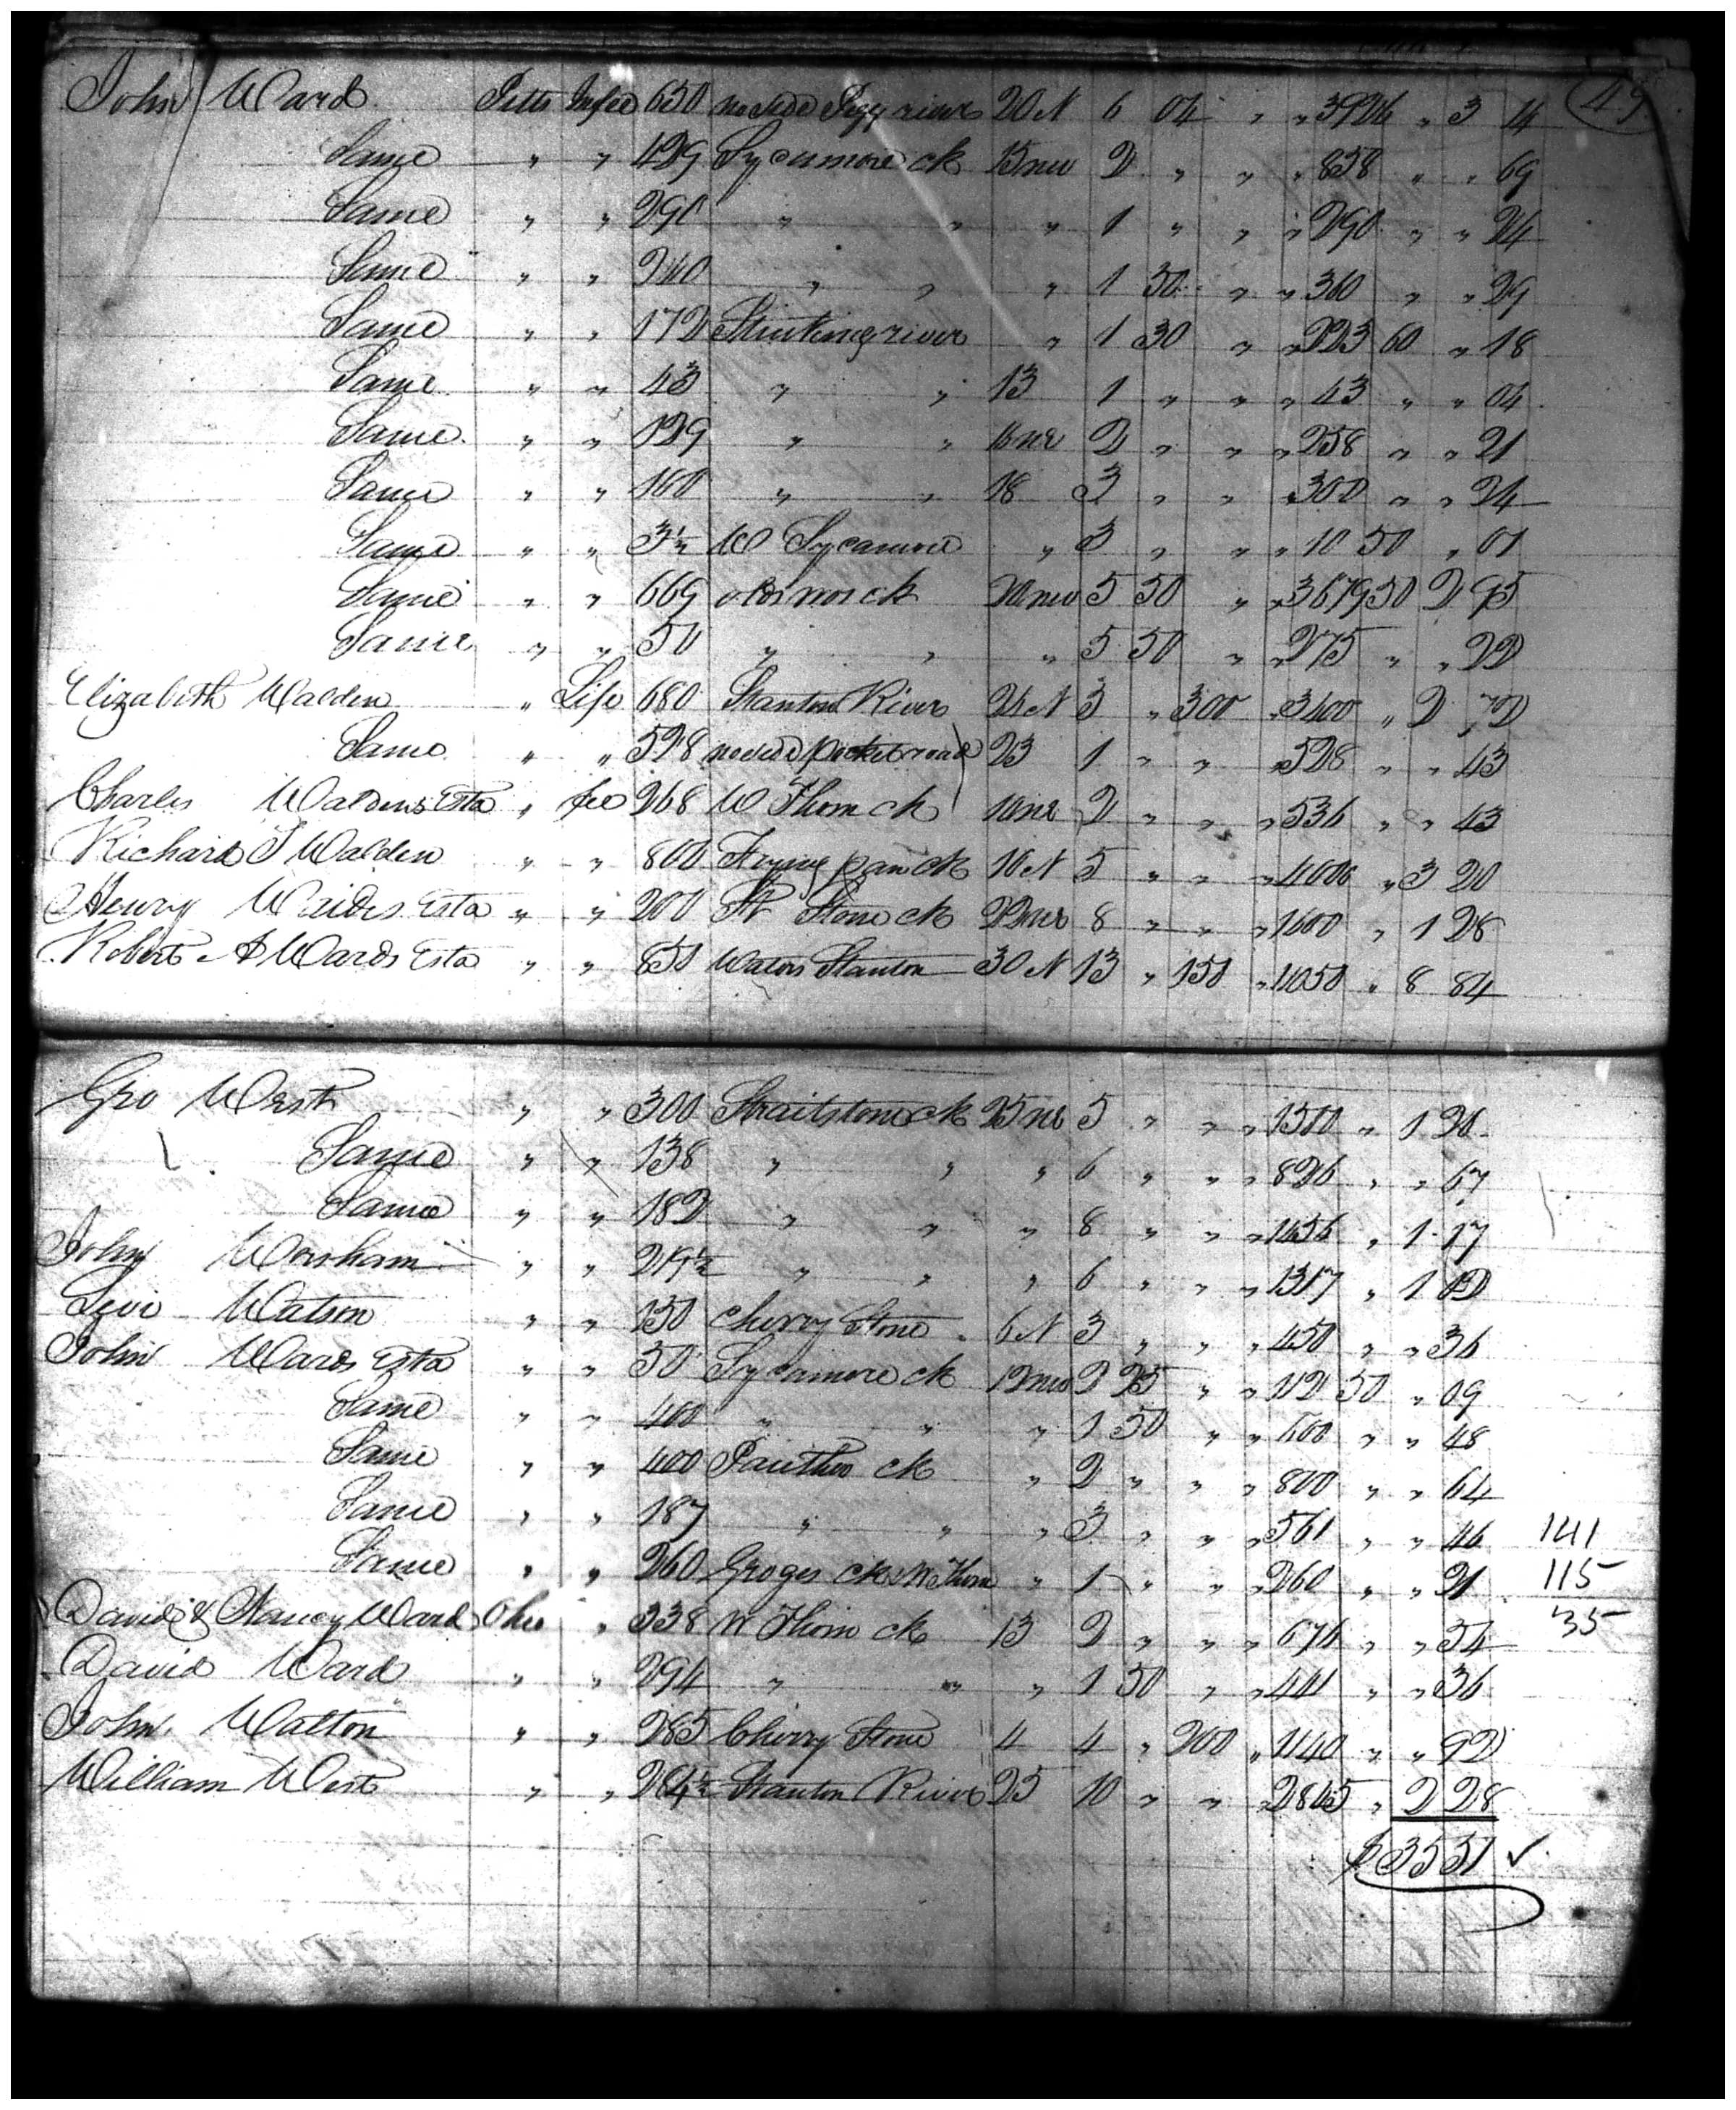 49
John Ward Pitts Infee 650 no side Pigg river 20 N 6 04 " " 3926 " 3 14
Same " " 429 Sycamore ck 15 nw 2 " " " 858 " " 69
Same " " 290 " " " 1 " " " 290 " " 24
Same " " 240 " " " 1 50 " " 360 " " 29
Same " " 172 Stinking river " 1 30 " " 223 60 " 18
Same " " 43 " " 13 1 " " " 43 " " 04
Same " " 129 " " 16 ne 2 " " " 258 " " 21
Same " " 100 " " 18 3 " " " 300 " " 24
Same " " 3½ W Sycamore " 3 " " " 10 50 " 01
Same " " 669 ck 20 nw 5 50 " " 3679 50 2 95
Same " " 50 " " " 5 50 " " 275 " " 22
Elizabeth Walden " Life 680 Stanton River 24 N 5 " 300 " 3400 " 2 72
Same " " 528 no side pocket road 23 1 " " " 528 " " 43
Charles Waldens Esta " fee 268 W Thorn ck 10 ne 2 " " " 536 " " 43
Richard J Walden " " 800 Frying pan ck 10 N 5 " " " 4000 " 3 20
Henry Esta " " 200 St Stone ck 22 ne 8 " " " 1600 " 1 28
Robert A Wards Esta " " 850 Waters Stanton 30 N 13 " 150 " 11050 " 8 84
Geo West " " 300 Straitstone ck 25 ne 5 " " " 1500 " 1 20
Same " " 138 " " " 6 " " " 826 " " 67
Same " " 182 " " " 8 " " " 1456 " 1 17
John Worsham " " 219½ " " " 6 " " " 1317 " 1 02
Levi Watson " " 150 Cherry Stone " 6 N 3 " " " 450 " " 36
John Wards Esta " " 50 Sycamore ck 12 nw 2 25 " " 112 50 " 09
Same " " 400 " " " 1 50 " " 600 " " 48
Same " " 400 Panther ck " 2 " " " 800 " " 64
Same " " 187 " " " 3 " " " 561 " " 46 141
Same " " 260 Georges ck & W Thorn " 1 " " " 260 " " 21 115
David & Nancy Ward Ohio " 338 W Thorn ck 13 2 " " " 676 " " 54 35
David Ward " " 294 " " " 1 50 " " 441 " " 36
John Walton " " 285 Cherry Stone 4 4 " 200 " 1140 " " 92
William West " " 284½ Stanton River 25 10 " " " 2845 " 2 28
$35 31 ✓